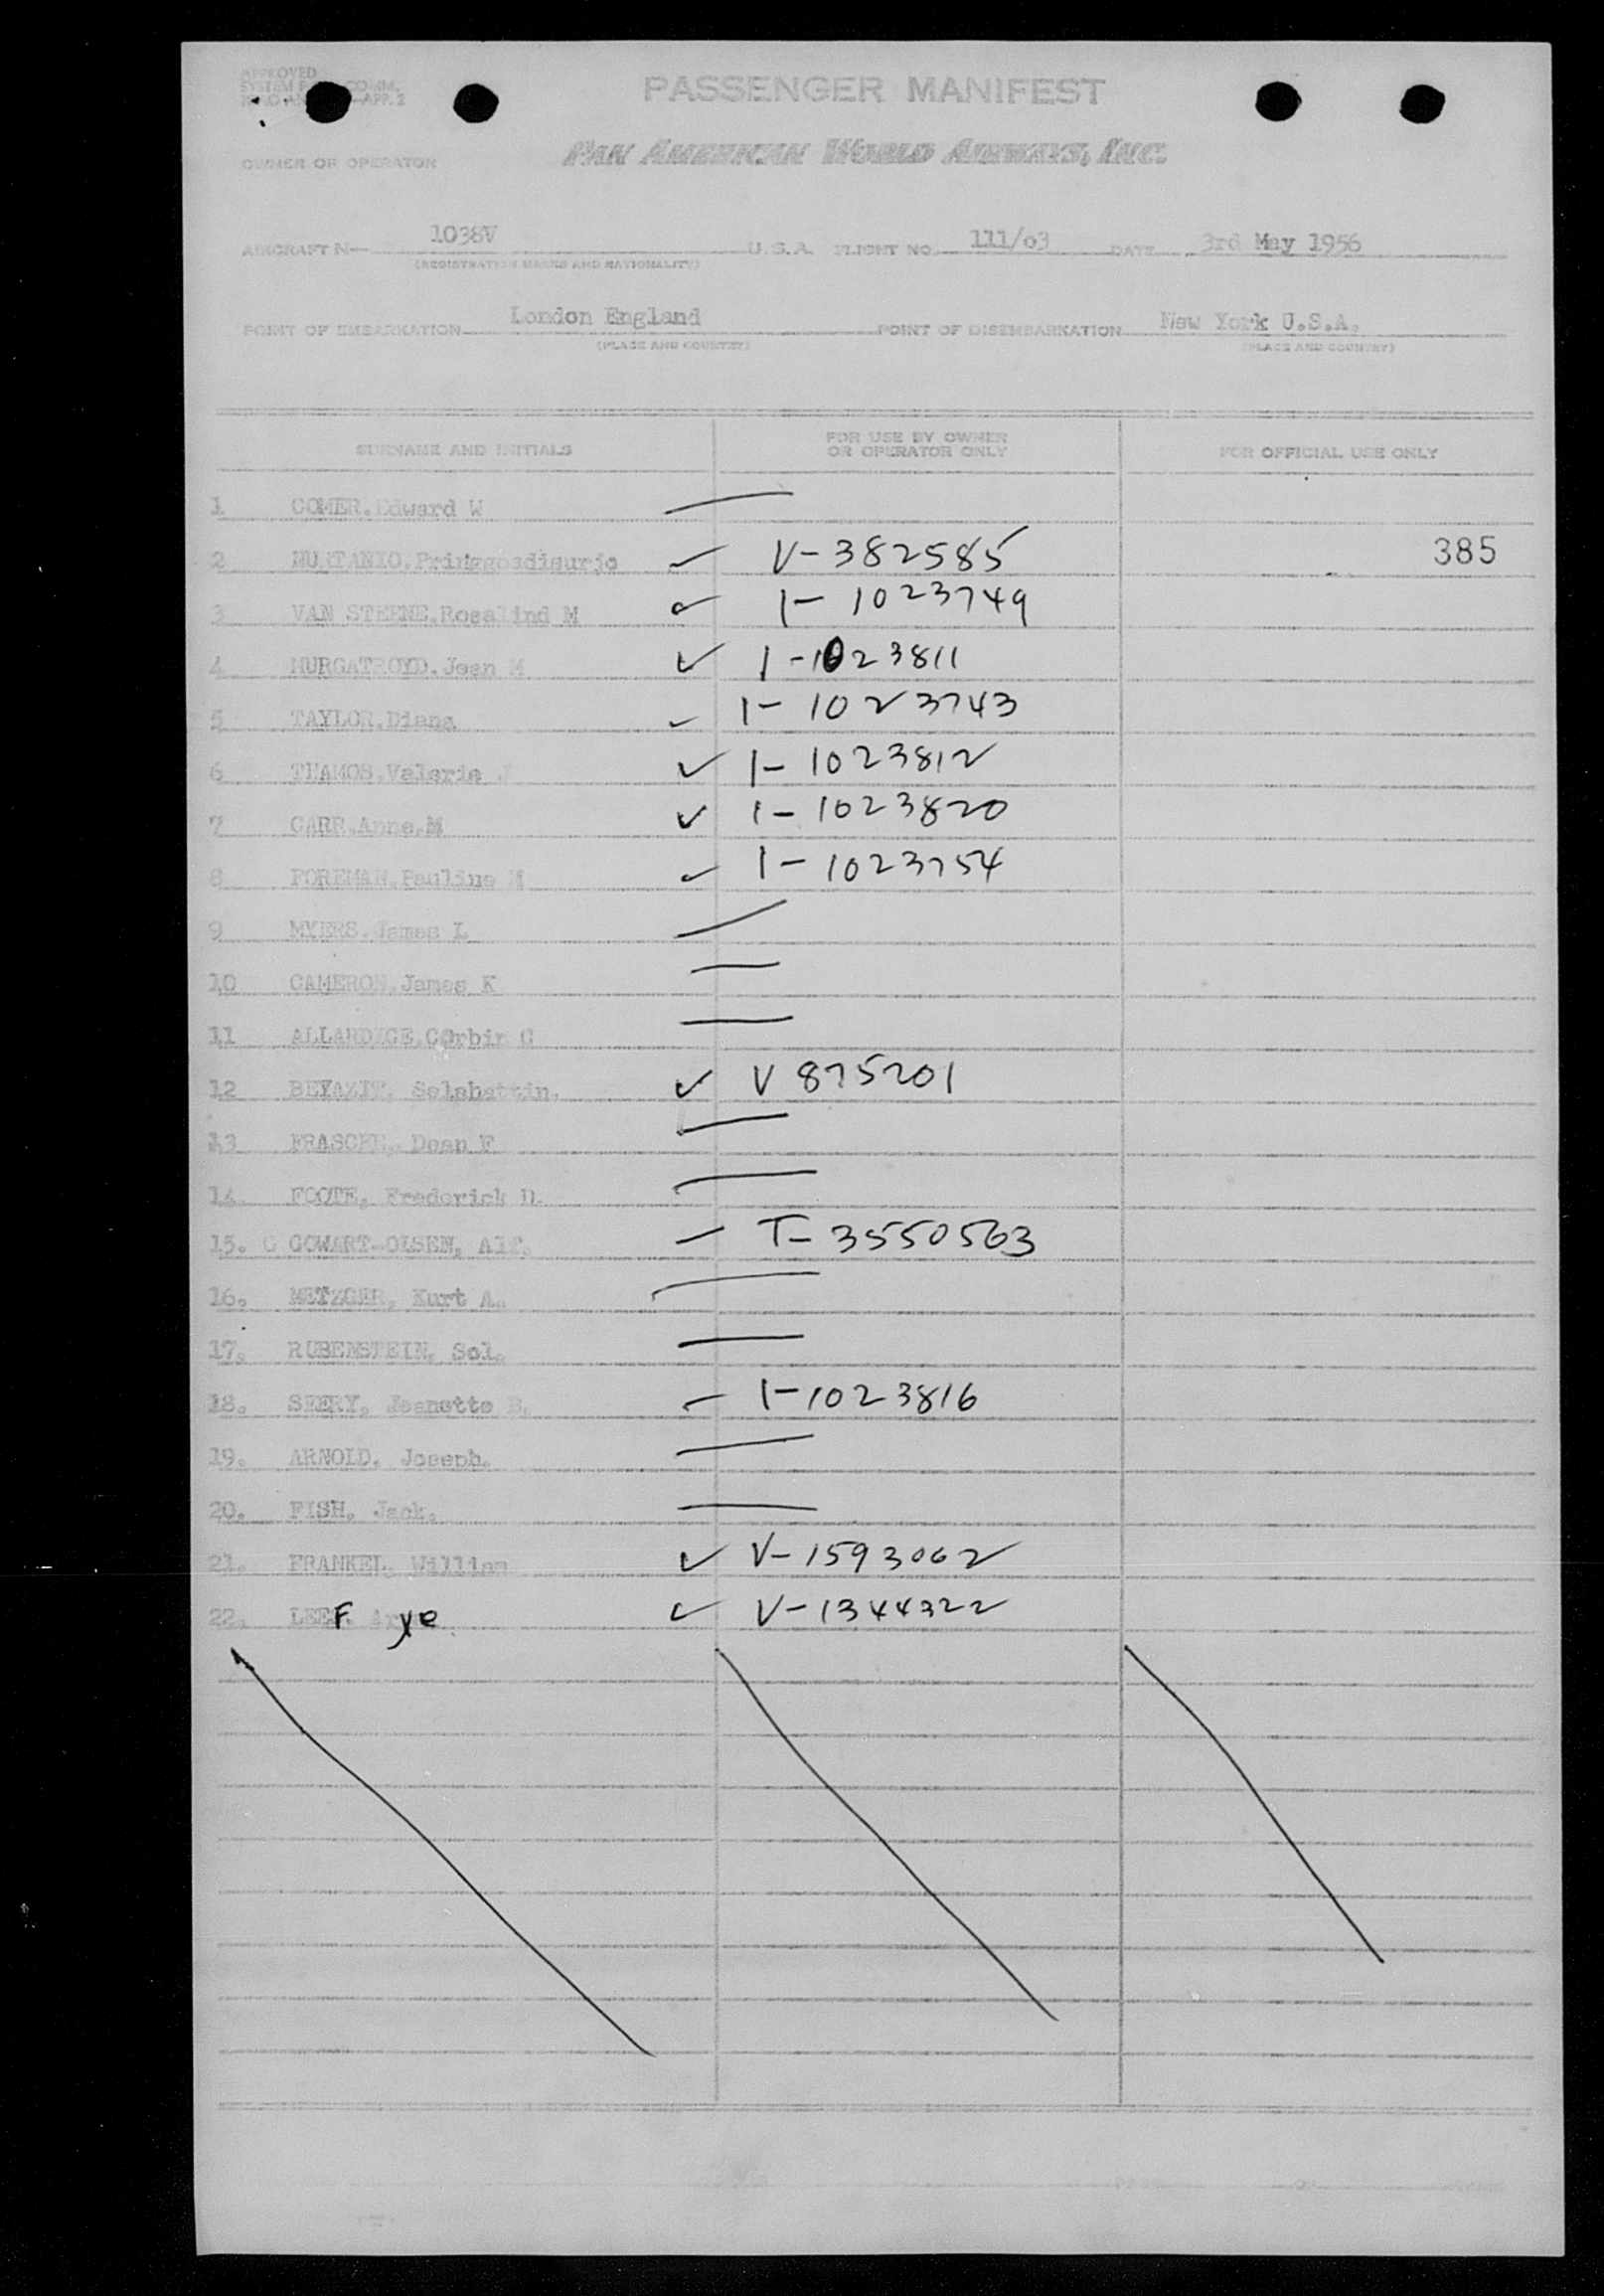 APPROVED
PASSENGER MANIFEST
PAN AMERICAN WORLD AIRWAYS, INC.
OWNER OR OPERATOR
AIRCRAFT N— 1038V U.S.A. FLIGHT NO. 111/o3 DATE 3rd May 1956
(REGISTRATION MARKS AND NATIONALITY)
POINT OF EMBARKATION London England POINT OF DISEMBARKATION New York U.S.A.
(PLACE AND COUNTRY) (PLACE AND COUNTRY)
SURNAME AND INITIALS FOR USE BY OWNER OR OPERATOR ONLY FOR OFFICIAL USE ONLY
1 COMER.Edward W
2 V-382585 385
3 VAN STEENE.Rosalind M 1-1023749
4 MURGATROYD.Jean M 1-1023811
5 TAYLOR.Diana 1-1023743
6 THAMOS.Valerie J 1-1023812
7 CARR.Anne.M 1-1023820
8 FOREMAN.Pauline M 1-1023754
9 MYERS.James L
10 CAMERON.James K
11 ALLARDICE.Corbin C
12 BEYAZIT. V 875201
13 FRASCHE. Dean F
14. FOOTE, Frederick D.
15. GOWART-OLSEN, Alf. T-3550563
16. METZGER, Kurt A.
17. RUBENSTEIN, Sol.
18. SEERY, Jeanette B. 1-1023816
19. ARNOLD, Joseph.
20. FISH, Jack.
21. FRANKEL, William V-1593062
22. LEEF. Arye V-1344322